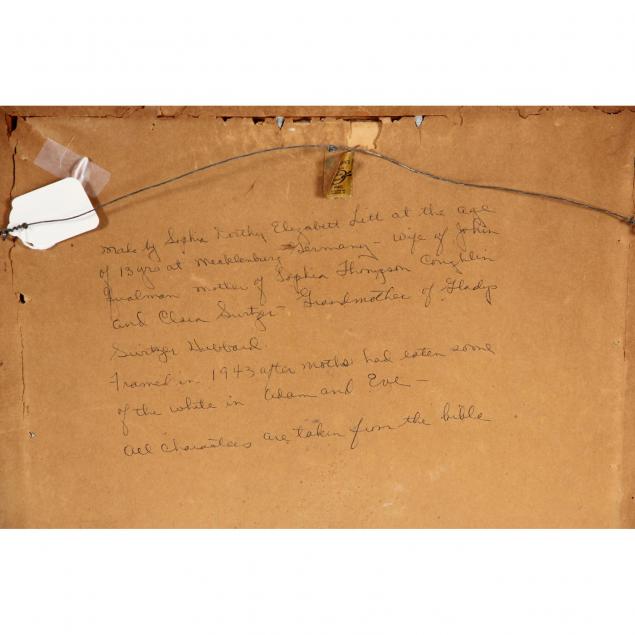 Made by Sophia Dorthy Elizabett Litt at the age
of 13 yrs at Mecklenburg Germany - Wife of John
Qualman mother of Sophia Thompson Coughlin
and Clara Switzer - Grandmother of Gladys
Switzer Hubbard.
Framed in 1943 after moths had eaten some
of the white in Adam and Eve -
all charatters are taken from the bible